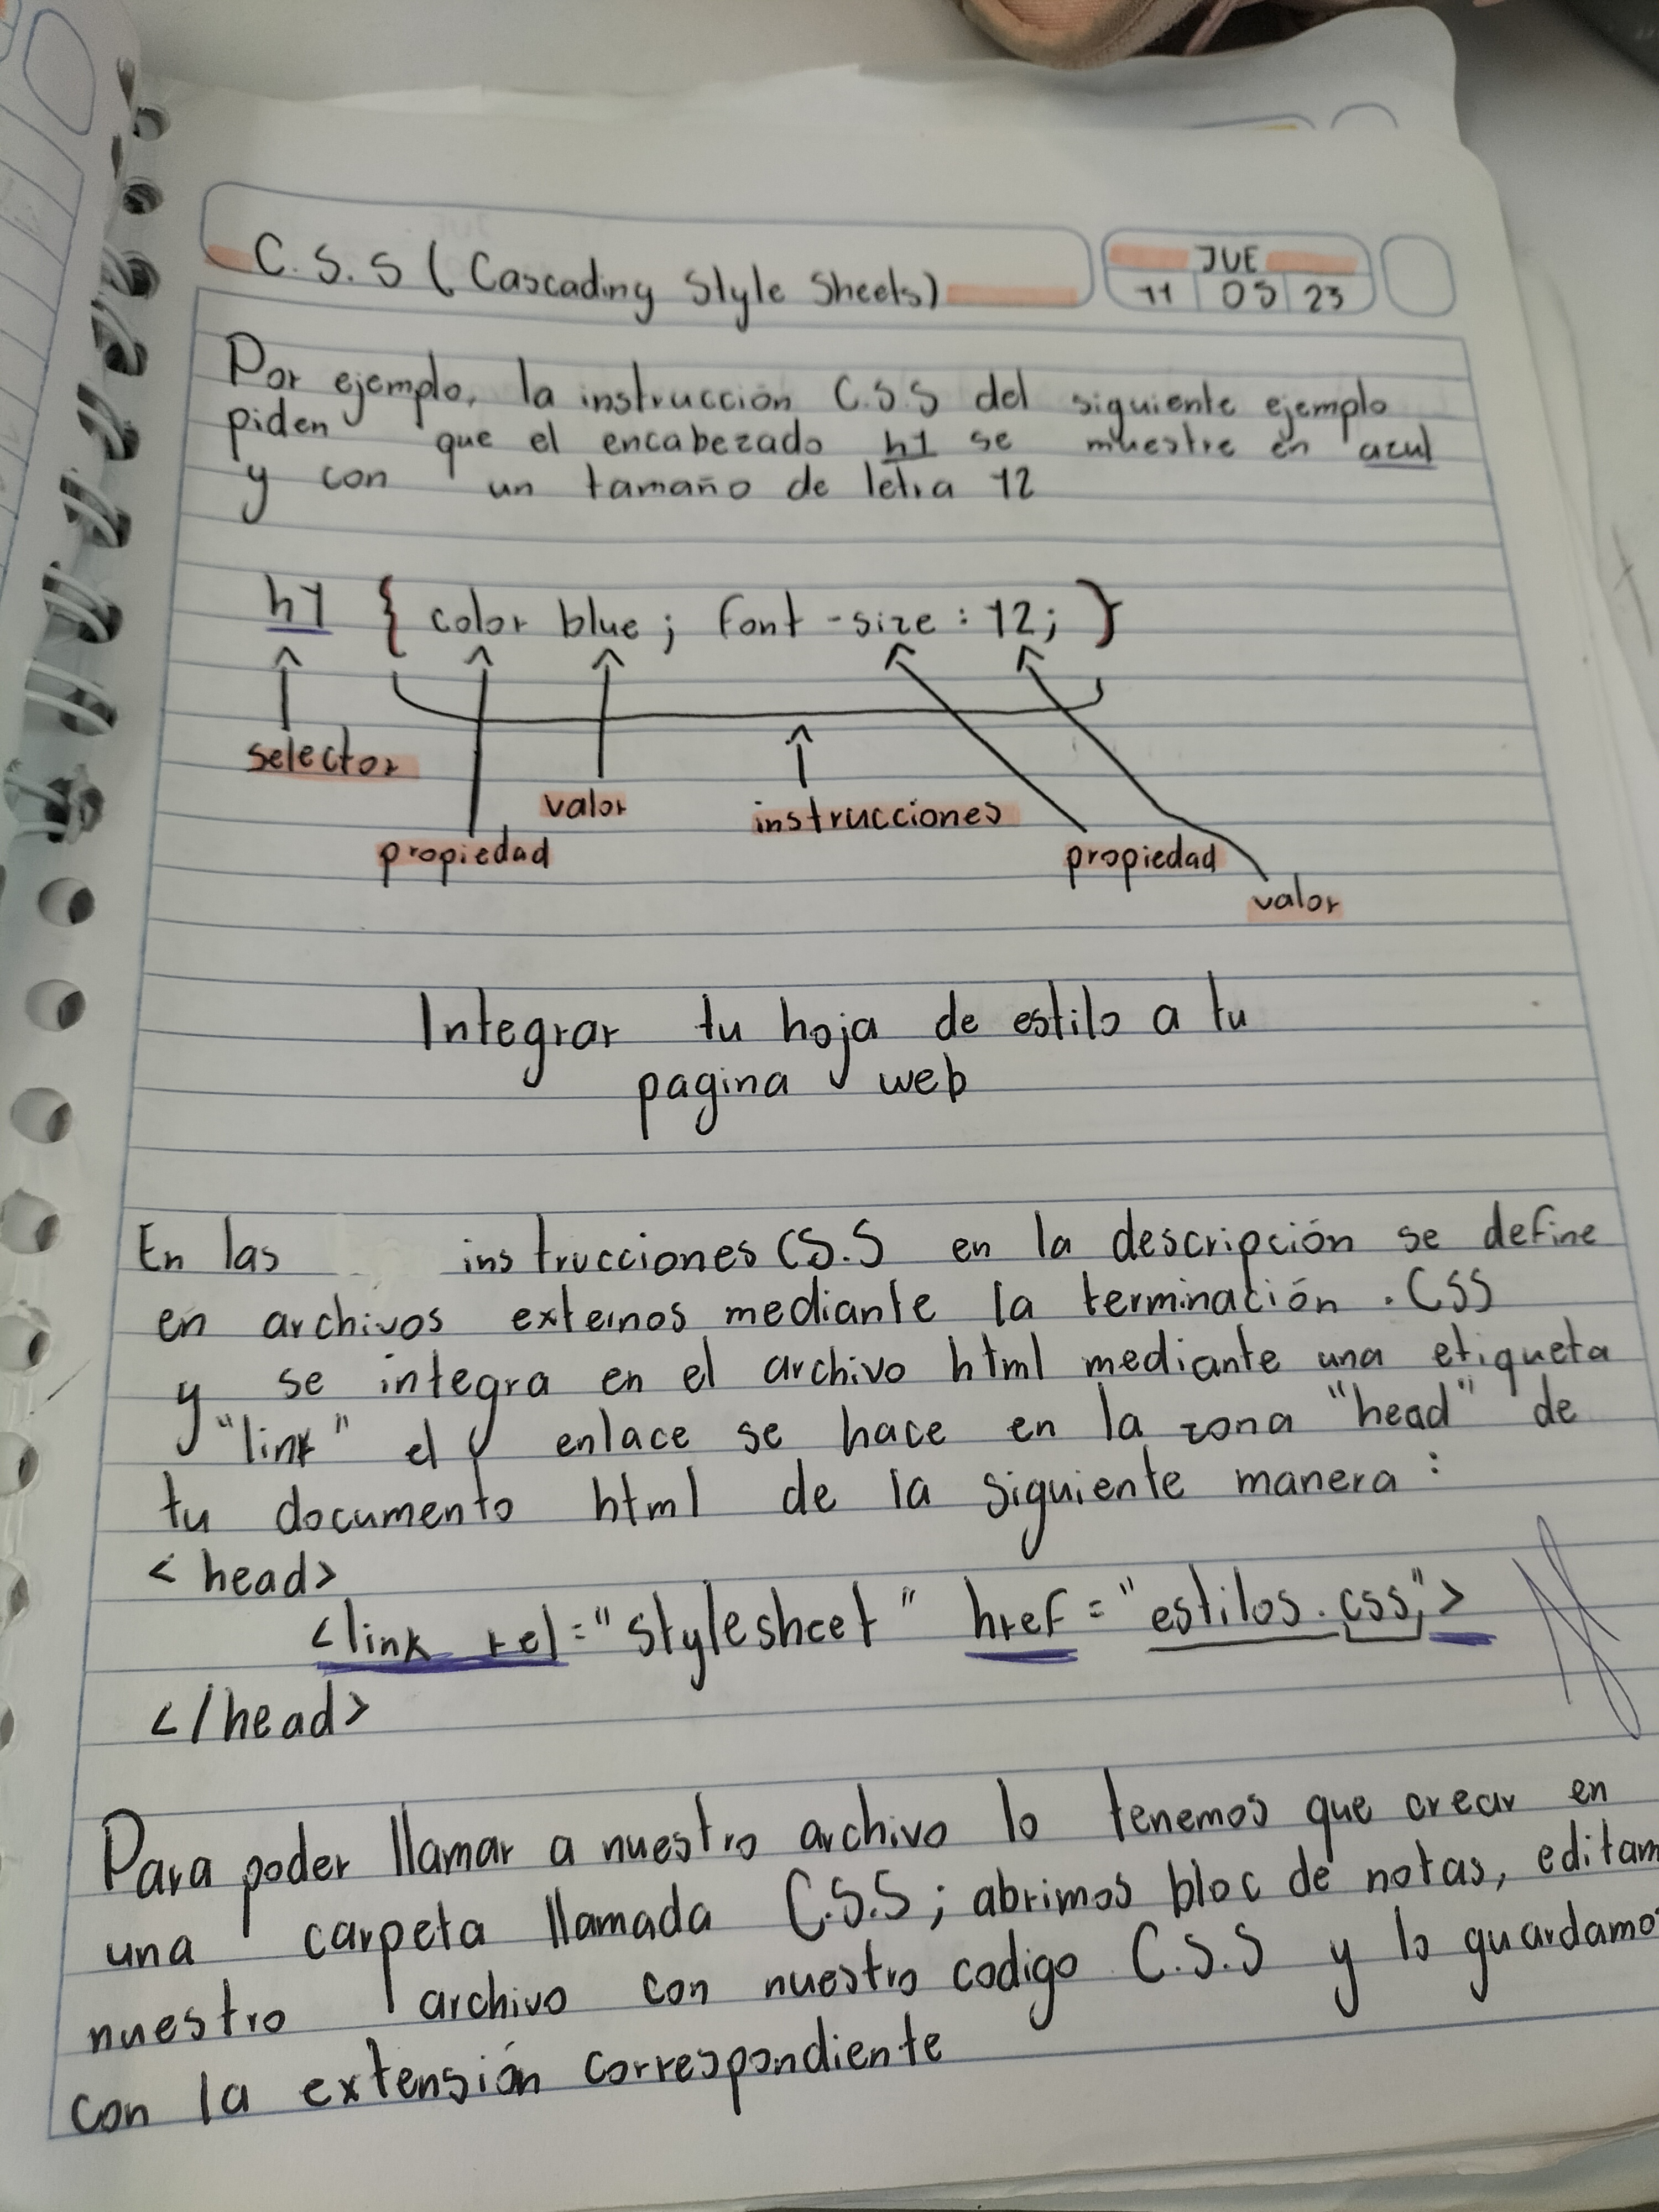 C.S.S (Cascading Style Sheets)
JUE
11 05 23
Por ejemplo, la instrucción C.S.S del siguiente ejemplo
piden que el encabezado h1 se muestre en azul
y con un tamaño de letra 12
h1 { color blue; font-size: 12; }
selector
valor
instrucciones
propiedad
propiedad
valor
Integrar tu hoja de estilo a tu
pagina web
En las instrucciones CS.S en la descripción se define
en archivos externos mediante la terminación .CSS
y se integra en el archivo html mediante una etiqueta
"link" el enlace se hace en la zona "head" de
tu documento html de la siguiente manera:
<head>
<link rel="stylesheet" href="estilos.css">
</head>
Para poder llamar a nuestro archivo lo tenemos que crear en
una carpeta llamada C.S.S; abrimos bloc de notas, editam
nuestro archivo con nuestro codigo C.S.S y lo guardamo
con la extensión correspondiente